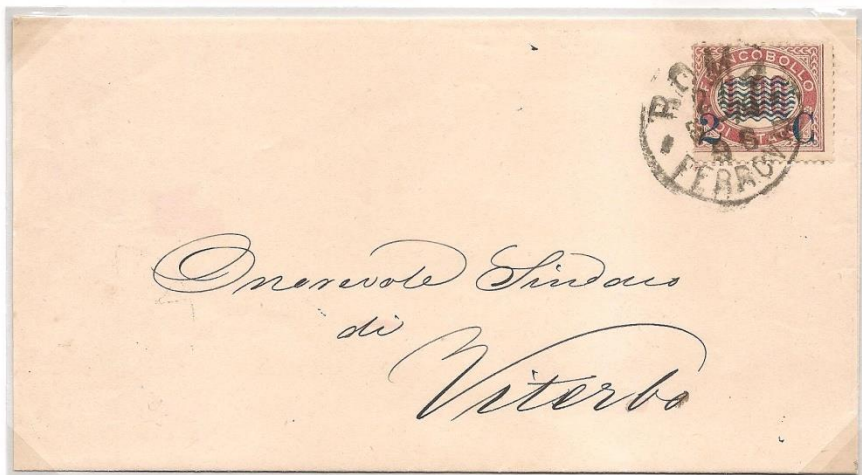 FRANCOBOLLO
DI STATO
2 C
ROMA
FERROVIA
Onorevole Sindaco
di
Viterbo